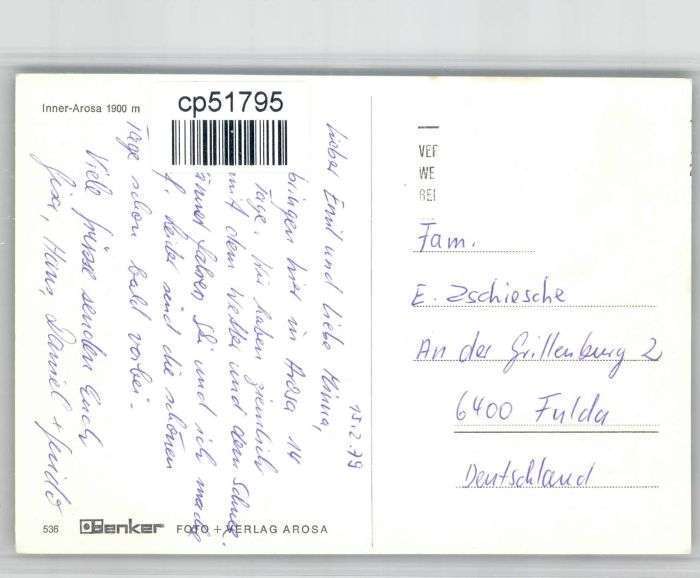 Inner-Arosa 1900 m
cp51795
15.2.79
Lieber Emil und liebe Minna,
bringen wir in Arosa 14
Tage. Wir haben ziemlich
mit dem Wetter und dem Schnee.
Männer fahren Ski und ich mache
f. Leider sind die schönen
Tage schon bald vorbei.
Viele Grüsse senden Euch
Hans, Daniel + Guido
536 Denker FOTO + VERLAG AROSA
VER
WE
REI
Fam.
E. Zschiesche
An der Grillenburg 2
6400 Fulda
Deutschland